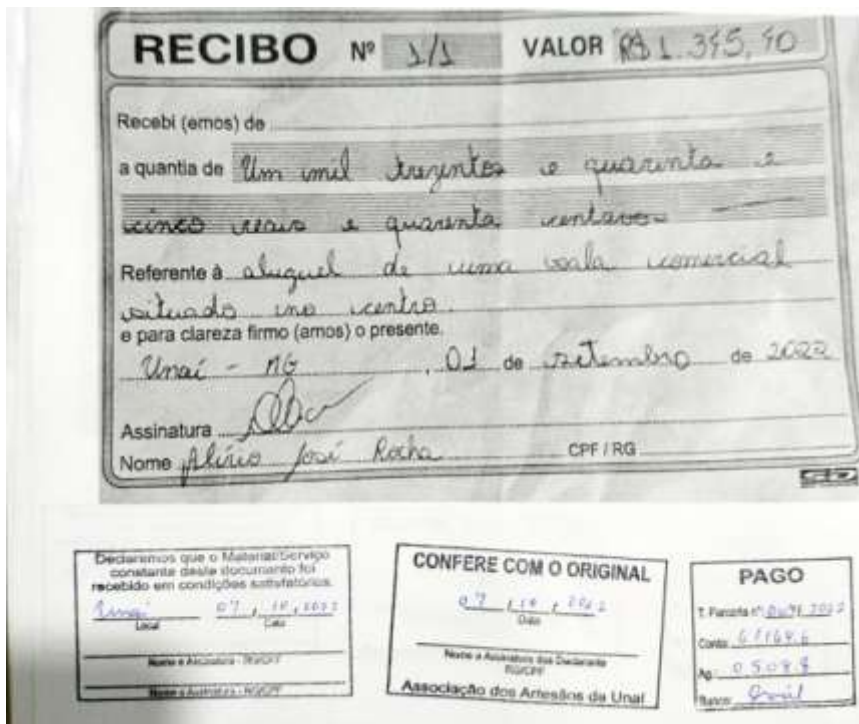 RECIBO Nº 1/1 VALOR R$ 1.345,40
Recebi (emos) de
a quantia de Um mil trezentos e quarenta e
cinco reais e quarenta centavos
Referente à aluguel de uma sala comercial
situado no centro.
e para clareza firmo (amos) o presente.
Unaí - MG, 01 de setembro de 2022
Assinatura
Nome Alírio José Rocha CPF / RG
Declaramos que o Material/Serviço
constante deste documento foi
recebido em condições satisfatórias.
Unaí 07, 10, 2022
Local Data
Nome e Assinatura - RG/CPF
Nome e Assinatura - RG/CPF
CONFERE COM O ORIGINAL
07, 10, 2022
Data
Nome e Assinatura dos Declarante
RG/CPF
Associação dos Artesãos de Unaí
PAGO
T. Parceria nº 2022
Conta:
Ag.: 0508-8
Banco: Brasil